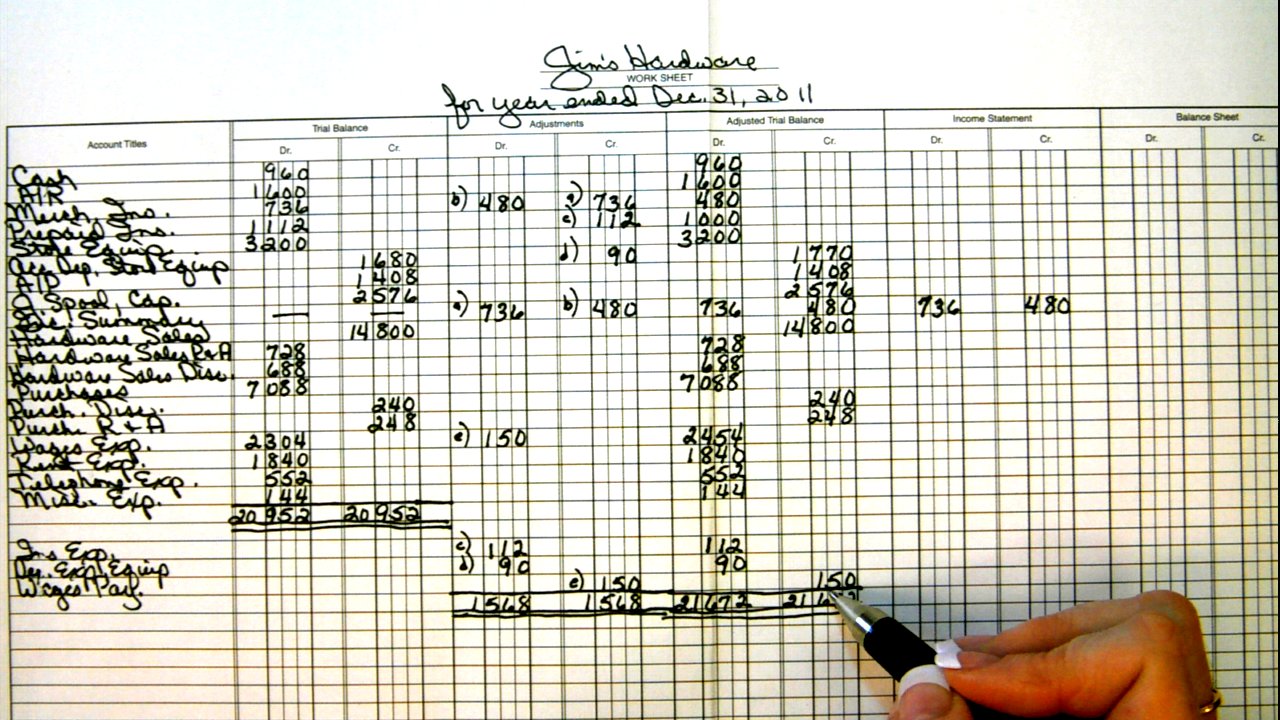 Jim's Hardware
WORK SHEET
for year ended Dec. 31, 2011
Account Titles Trial Balance Adjustments Adjusted Trial Balance Income Statement Balance Sheet
Dr. Cr. Dr. Cr. Dr. Cr. Dr. Cr. Dr. Cr.
Cash 960 960
A/R 1600 1600
Merch. Ins. 736 b) 480 a) 736 480
Prepaid Ins. 1112 c) 112 1000
Store Equip. 3200 3200
Acc. Dep. Store Equip 1680 d) 90 1770
A/P 1408 1408
Spool, Cap. 2576 2576
Summary — — a) 736 b) 480 736 480 736 480
Hardware Sales 14800 14800
Hardware Sales R+A 728 728
Hardware Sales Disc. 688 688
Purchases 7088 7088
Purch. Disc. 240 240
Purch. R + A 248 248
Wages Exp. 2304 e) 150 2454
Rent Exp. 1840 1840
Telephone Exp. 552 552
Misc. Exp. 144 144
20952 20952
Ins Exp. c) 112 112
Dep. Exp Equip d) 90 90
Wages Pay. e) 150 150
1568 1568 21672